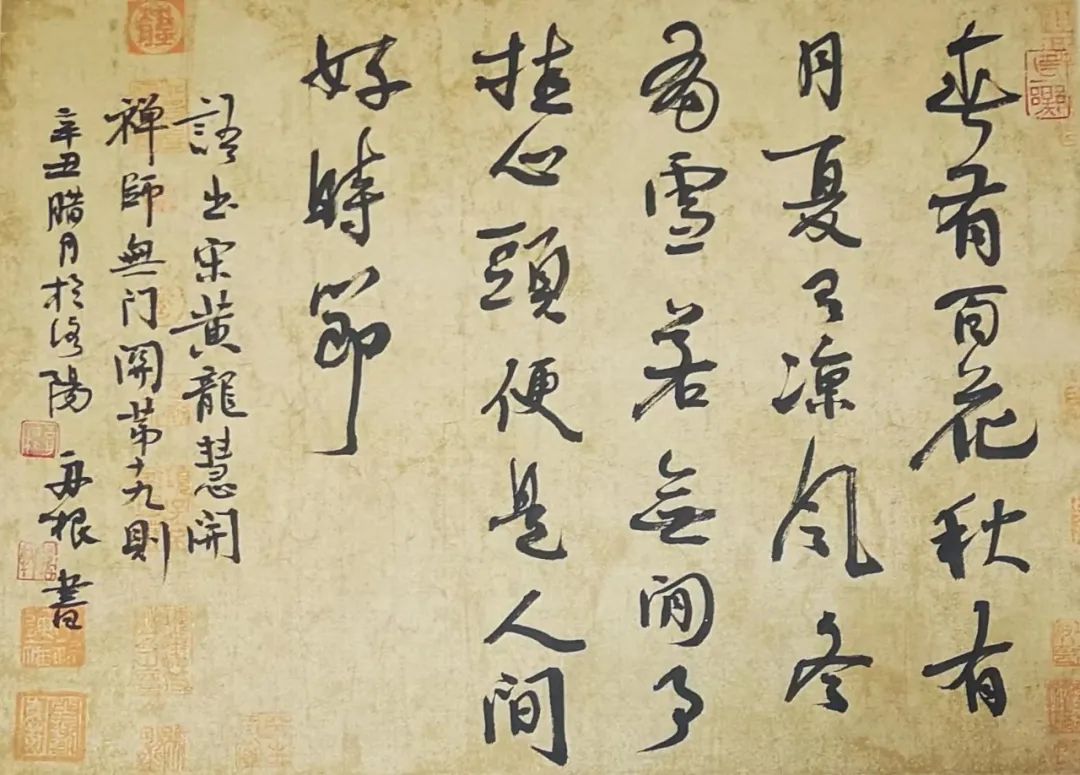 春有百花秋有
月夏有凉风冬
有雪若無闲事
挂心頭便是人间
好時節
語出宋黄龍慧開
禅師無门関第十九則
辛丑腊月於洛陽 根書